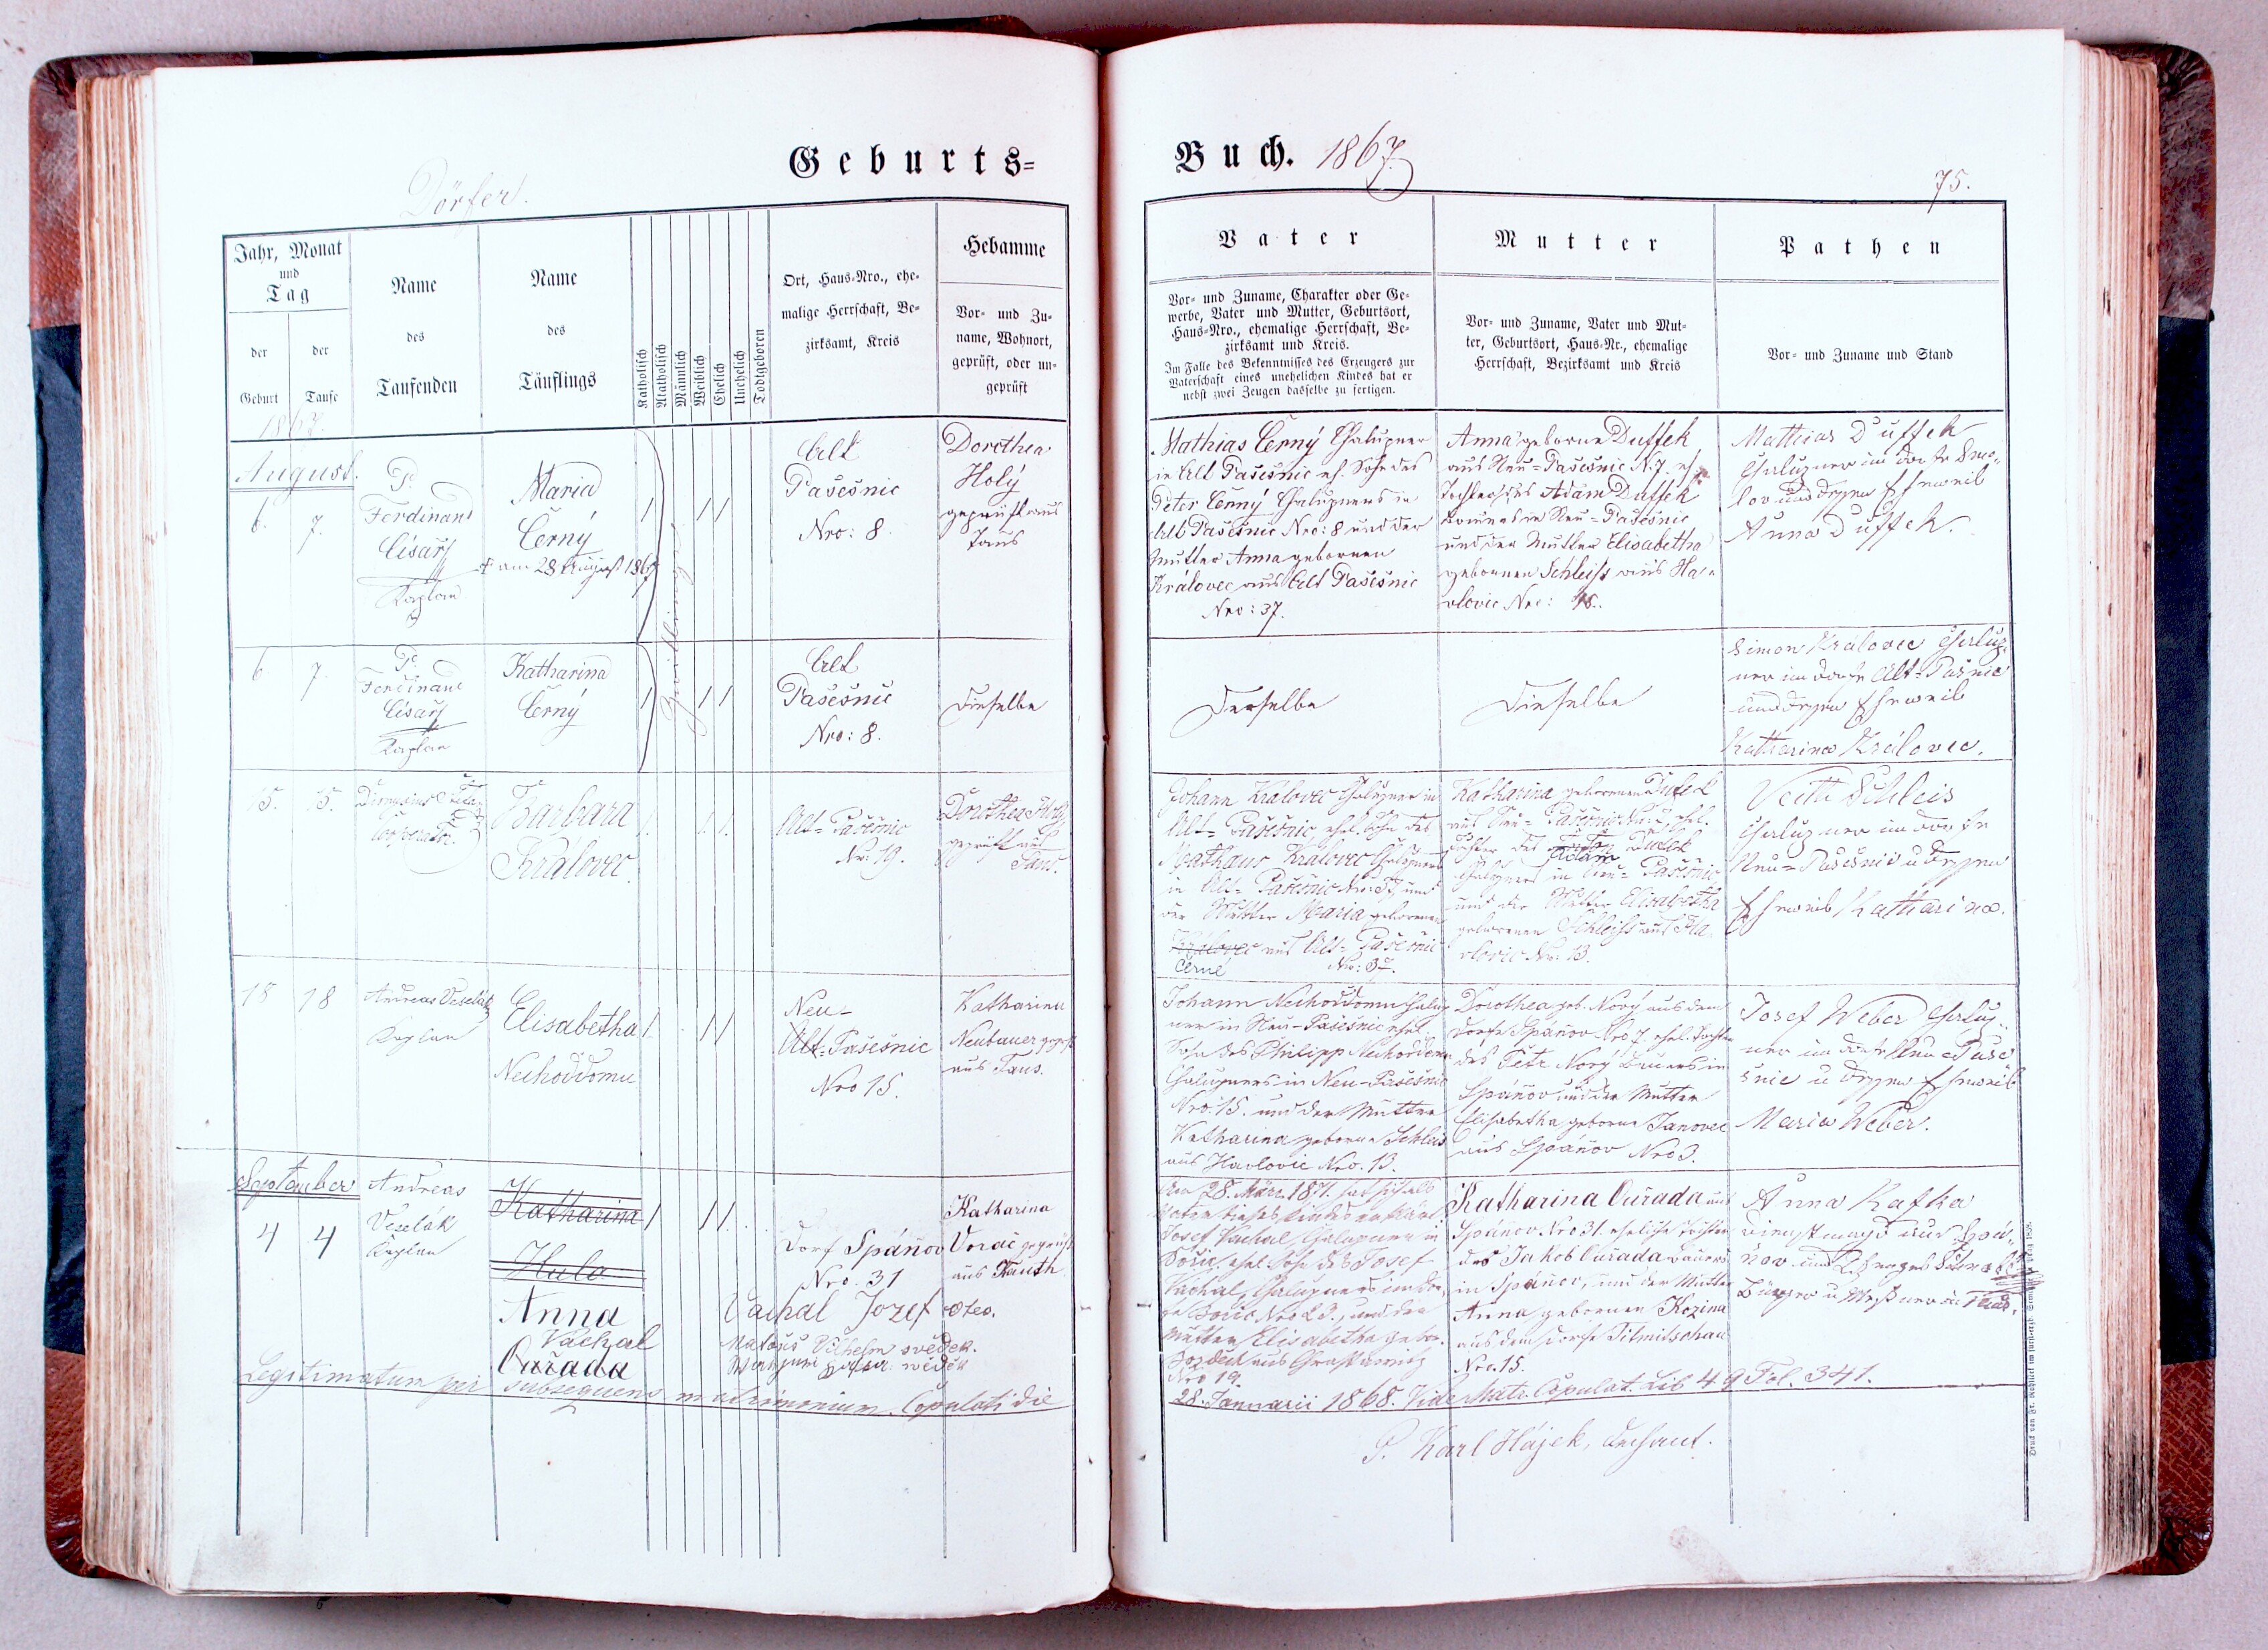 Geburts=
Buch. 1867.
Dörfer.
75.
Jahr, Monat
und
Tag
der
Geburt
der
Taufe
Name
des
Taufenden
Name
des
Täuflings
Katholisch
Akatholisch
Männlich
Weiblich
Ehelich
Unehelich
Todtgeboren
Ort, Haus-Nro., ehe-
malige Herrschaft, Be-
zirksamt, Kreis
Hebamme
Vor- und Zu-
name, Wohnort,
geprüft, oder un-
geprüft
Vater
Vor- und Zuname, Charakter oder Ge-
werbe, Vater und Mutter, Geburtsort,
Haus-Nro., ehemalige Herrschaft, Be-
zirksamt und Kreis.
Im Falle des Bekenntnisses des Erzeugers zur
Vaterschaft eines unehelichen Kindes hat er
nebst zwei Zeugen dasselbe zu fertigen.
Mutter
Vor- und Zuname, Vater und Mut-
ter, Geburtsort, Haus-Nr., ehemalige
Herrschaft, Bezirksamt und Kreis
Pathen
Vor- und Zuname und Stand
1867.
August.
6. 7.
P.
Ferdinand
Císař
Kaplan
Maria
Černý
† am 28 August 1867
Zwillinge
Alt
Pasečnic
Nro: 8.
Dorothea
Holý
geprüft aus
Taus
Mathias Černý Chalupner
in Alt Pasečnic eh. Sohn des
Peter Černý Chalupners in
Alt Pasečnic Nro: 8 und der
Mutter Anna gebornen
Královec aus Alt Pasečnic
Nro: 37.
Anna geborne Duffek
aus Neu=Pasečnic N. 7. eh.
Tochter des Adam Duffek
Bauers in Neu=Pasečnic
und der Mutter Elisabetha
gebornen Schleiss aus Ha-
vlovic Nro:
Mathias Duffek
Chalupner im Dorfe Smo-
lov und dessen Eheweib
Anna Duffek.
6. 7.
P.
Ferdinand
Císař
Kaplan
Katharina
Černý
Alt
Pasečnic
Nro: 8.
Dieselbe
Derselbe
Dieselbe
Simon Královec Chalup-
ner im Dorfe Alt=
und dessen Eheweib
Katharina Královec.
15. 15.
Dionysius
Cooperator.
Barbara
Královec.
Alt=Pasečnic
Nr. 19.
Dorothea Holý
geprüft aus
Taus.
Johann Královec Chalupner in
Alt=Pasečnic, ehel. Sohn des
Mathäus Královec Chalupners
in Alt=Pasečnic Nro: 37 und
der Mutter Maria gebornen
Královec aus Alt=Pasečnic
Černé
Katharina gebornen Dufek
aus Neu=Pasečnic ehel.
Tochter des Dufek
Adam
Chalupners in Neu=Pasečnic
und der Mutter Elisabetha
gebornen Schleiss aus Ha-
vlovic Nr. 13.
Veith Schleis
Chalupner im Dorfe
Neu=Pasečnic u dessen
Eheweib Katharina.
18 18
Andreas Veselák
Kaplan
Elisabetha
Nechoddomu
Neu-
Alt=Pasečnic
Nro 15.
Katharina
Neubauer geprüft
aus Taus.
Johann Nechoddomu Chalup-
ner in Neu-Pasečnic ehel.
Sohn des Philipp Nechoddomu
Chalupners in Neu-Pasečnic
Nro. 15. und der Mutter
Katharina geborne Schleis
aus Havlovic Nro. 13.
Dorothea geb. Nový aus dem
Dorfe Spáňov Nro 7. ehel. Tochter
des Petr Nový Bauers in
Spáňov und der Mutter
Elisabetha geborne Janovec
aus Spáňov Nro 3.
Josef Weber Chalup-
ner im Dorfe Neu=Pase-
čnic u dessen Eheweib
Maria Weber.
September
4 4
Andreas
Veselák
Kaplan
Katharina
Hala
Anna
Vachal
Ouřada
Dorf Spáňov
Nro. 31
Vachal Jozef otec.
Matouš Vilhelm svědek.
Katharina
Voráč geprüft
aus Kauth.
Am 28. März 1871. hat sich als
Vater dieses Kindes erklärt
Josef Vachal, Chalupner in
Bořic, ehel. Sohn des Josef
Vachal, Chalupners im Dor-
fe Bořic Nro 23., und der
Mutter Elisabetha gebor.
aus
Nro 19
Katharina Ouřada aus
Spáňov Nro 31. eheliche Tochter
des Jakob Ouřada Bauers
in Spáňov, und der Mutter
Anna gebornen Kozina
aus dem Dorfe Tilmitschau
Nro. 15.
Anna Kafka
Dienstmagd aus Spá-
ňov und
Bürger u
Legitimatum per subsequens matrimonium. Copulati die
28. Januarii 1868. Vide Matr. Copulat. Lib 49 Fol. 341.
P. Karl Hájek, Dechant.